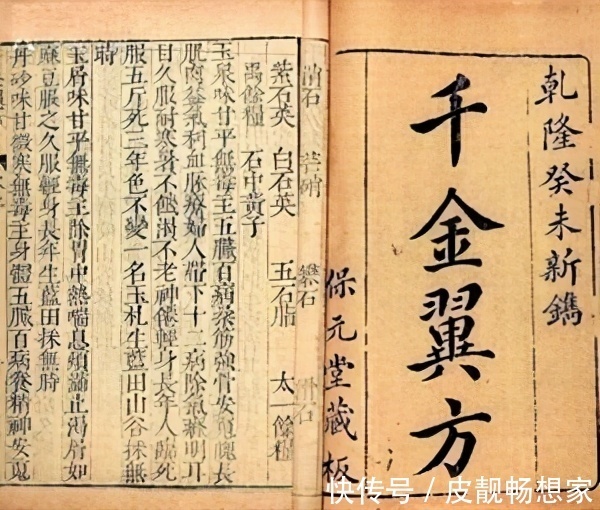 乾隆癸未新鐫
千金翼方
保元堂藏板
消石 芒硝 礬石
紫石英 白石英 五石脂 太一餘糧
禹餘糧 石中黃子
玉泉味甘平無毒主五臟百病柔筋強骨安魂魄長
肌肉益氣利血脉療婦人帶下十二病除氣癃明耳
目久服耐寒暑不飢渴不老神僊輕身長年人臨死
服五斤死三年色不變一名玉札生藍田山谷採無
時
玉屑味甘平無毒主除胃中熱喘息煩滿止渴屑如
麻豆服之久服輕身長年生藍田採無時
丹砂味甘微寒無毒主身體五臟百病養精神安魂
快传号 / 皮靓畅想家